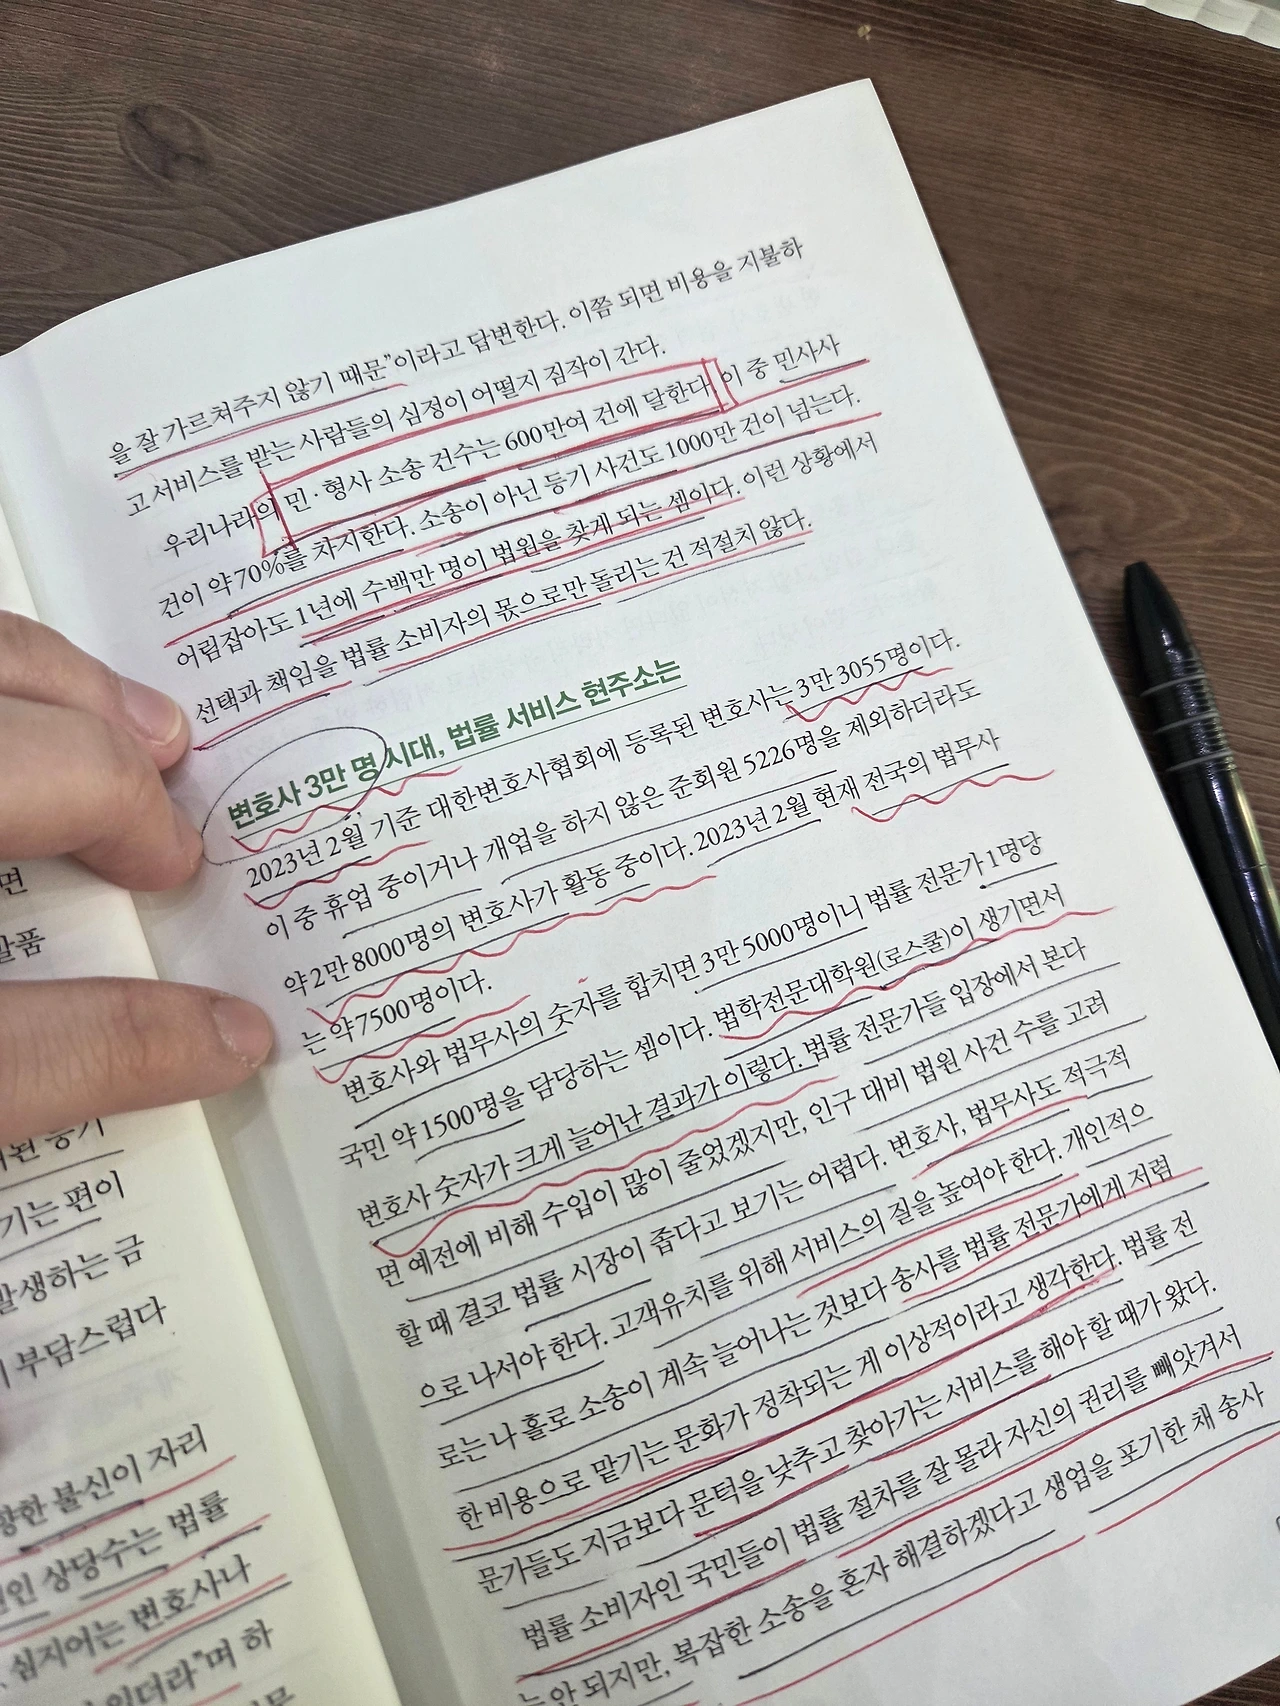 을 잘 가르쳐주지 않기 때문”이라고 답변한다. 이쯤 되면 비용을 지불하
고 서비스를 받는 사람들의 심정이 어떨지 짐작이 간다.
우리나라의 민·형사 소송 건수는 600만여 건에 달한다. 이 중 민사사
건이 약 70%를 차지한다. 소송이 아닌 등기 사건도 1000만 건이 넘는다.
어림잡아도 1년에 수백만 명이 법원을 찾게 되는 셈이다. 이런 상황에서
선택과 책임을 법률 소비자의 몫으로만 돌리는 건 적절치 않다.
변호사 3만 명 시대, 법률 서비스 현주소는
2023년 2월 기준 대한변호사협회에 등록된 변호사는 3만 3055명이다.
이 중 휴업 중이거나 개업을 하지 않은 준회원 5226명을 제외하더라도
약 2만 8000명의 변호사가 활동 중이다. 2023년 2월 현재 전국의 법무사
는 약 7500명이다.
변호사와 법무사의 숫자를 합치면 3만 5000명이니 법률 전문가 1명당
국민 약 1500명을 담당하는 셈이다. 법학전문대학원(로스쿨)이 생기면서
변호사 숫자가 크게 늘어난 결과가 이렇다. 법률 전문가들 입장에서 본다
면 예전에 비해 수입이 많이 줄었겠지만, 인구 대비 법원 사건 수를 고려
할 때 결코 법률 시장이 좁다고 보기는 어렵다. 변호사, 법무사도 적극적
으로 나서야 한다. 고객유치를 위해 서비스의 질을 높여야 한다. 개인적으
로는 나 홀로 소송이 계속 늘어나는 것보다 송사를 법률 전문가에게 저렴
한 비용으로 맡기는 문화가 정착되는 게 이상적이라고 생각한다. 법률 전
문가들도 지금보다 문턱을 낮추고 찾아가는 서비스를 해야 할 때가 왔다.
법률 소비자인 국민들이 법률 절차를 잘 몰라 자신의 권리를 빼앗겨서
는 안 되지만, 복잡한 소송을 혼자 해결하겠다고 생업을 포기한 채 송사
면
발품
된 등기
기는 편이
발생하는 금
부담스럽다
향한 불신이 자리
인 상당수는 법률
심지어는 변호사나
더라”며 하